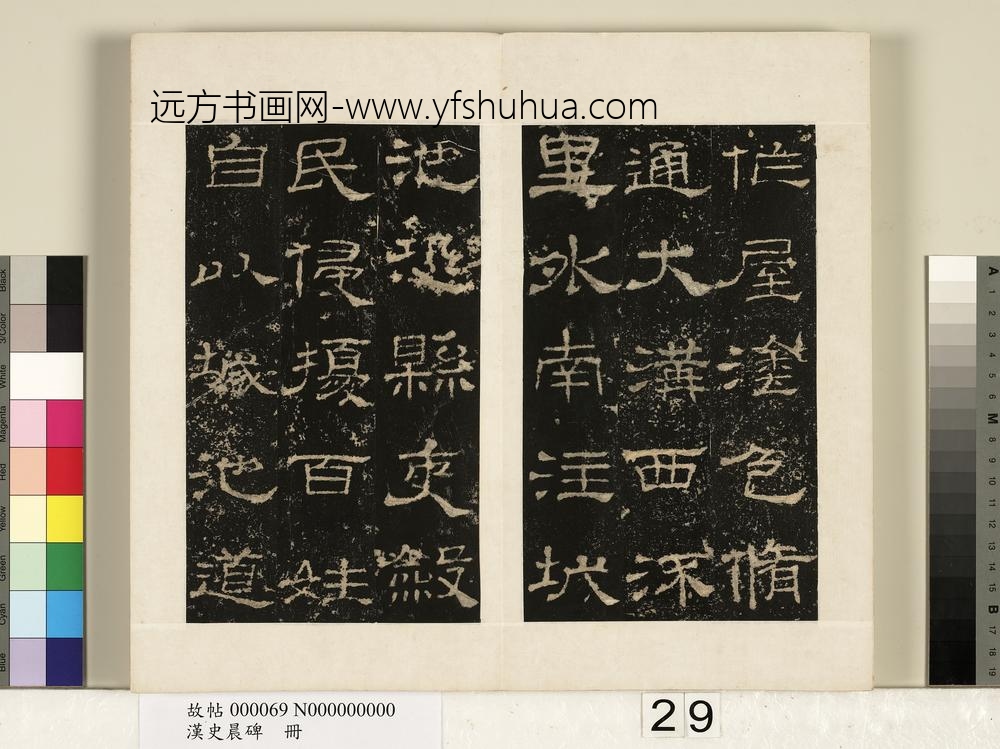 远方书画网-www.yfshuhua.com
作屋塗色脩
通大溝西流
里外南注城
池恐縣吏斂
民侵擾百姓
自以城池道
故帖 000069 N000000000
漢史晨碑 冊
29
Black
3/Color
White
Magenta
Red
Yellow
Green
Cyan
Blue
A 1 2 3 4 5 6 M 8 9 10 11 12 13 14 15 B 17 18 19